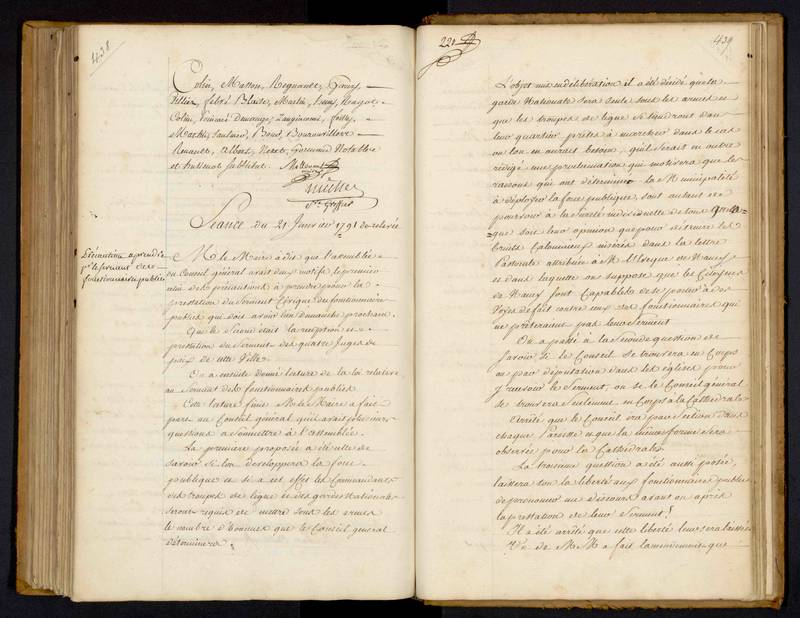 438
Colin, Masson, Regnault,
Febvé Blaise, Martin,
Colin, Poincaré
Martin, Saulnier,
Renault, Albert, Noret, Notable
et Institut substitut. Mallarmé
Séance du 21 Janvier 1791 de relevée
Précautions à prendre
pr le serment des
fonctionnaires publics
M. le Maire a dit que l'assemblée
du Conseil général avait deux motifs, le premier
celui des précautions à prendre pour la
prestation du Serment Civique des fonctionnaires
publics qui doit avoir lieu Dimanche prochain.
Que le Second était la réception et
prestation du Serment des quatre Juges de
paix de cette Ville.
On a ensuite donné lecture de la loi relative
au Serment des fonctionnaires publics
Cette lecture finie M. le Maire a fait
part au Conseil général qu'il avait plusieurs
questions à Soumettre à l'assemblée.
La première proposée a été celle de
savoir si l'on développera la force
publique et si à cet effet les Commandants
des troupes de ligne et des gardes Nationales
seront requis de mettre sous les armes
le nombre d'hommes que le Conseil général
déterminera.
221
439
L'objet mis en délibération il a été décidé que la
garde Nationale sera seule sous les armes et
que les troupes de ligne se tiendront dans
leur quartier prêtes à marcher dans le cas
où l'on en aurait besoin, qu'il serait en outre
rédigé une proclamation qui motivera que les
raisons qui ont déterminé la Municipalité
à déployer la force publique, sont autant de
pourvoir à la Sureté individuelle de tous
que soit leur opinion que pour détruire les
bruits Calomnieux insérés dans la lettre
Pastorale attribuée à M. l'Evêque de Nancy
et dans laquelle on suppose que les Citoyens
de Nancy sont Capables de se porter à des
Voyes de fait contre ceux des fonctionnaires qui
ne prêteraient pas leur Serment
On a passé à la Seconde question de
Savoir Si le Conseil se trouvera en Corps
ou par députation dans les églises pour
y recevoir le Serment, ou si le Conseil général
se trouvera Seulement en Corps à la Cathédrale
Arrêté que le Conseil ira par Section dans
chaque Paroisse et que la même forme sera
observée pour la Cathédrale.
La troisième question a été aussi posée,
laissera t'on la liberté aux fonctionnaires publics
de prononcer un discours avant ou après
la prestation de leur Serment?
Il a été arrêté que cette liberté leur sera laissée
Un de MM. a fait l'amendement que